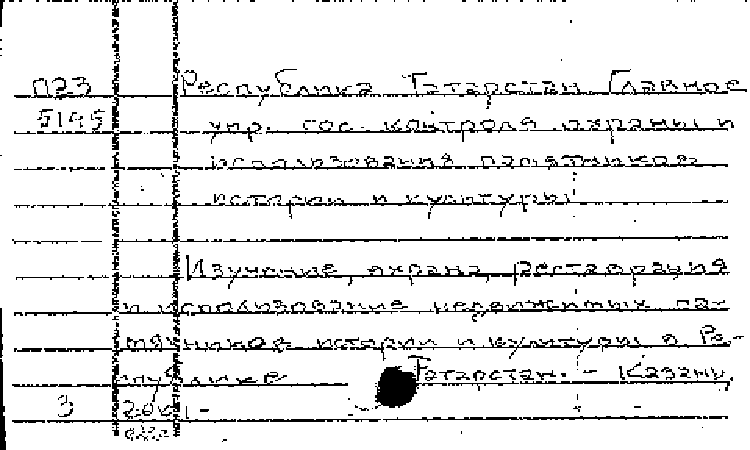 П23 Республика Татарстан. Главное
5145 упр. гос. контроля охраны и
использования памятников
истории и культуры
Изучение, охрана, реставрация
и использование недвижимых па-
мятников истории и культуры в Ре-
публике Татарстан. - Казань,
3 2001 -